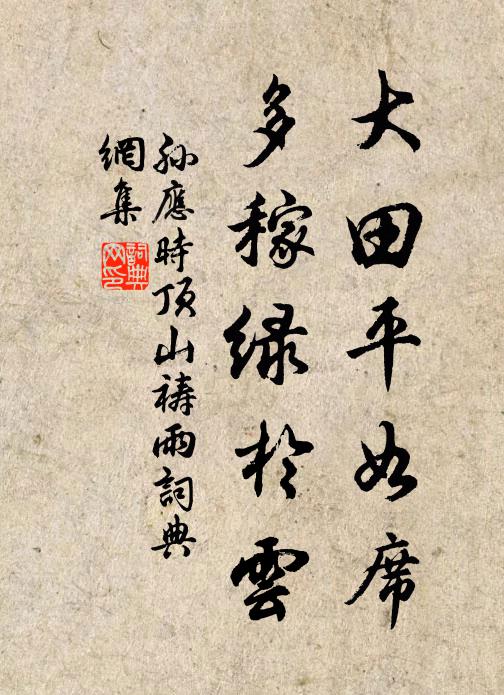 大田平如席
多稼緑於雲
孙應時頂山禱雨詞典
網集
詞典网印